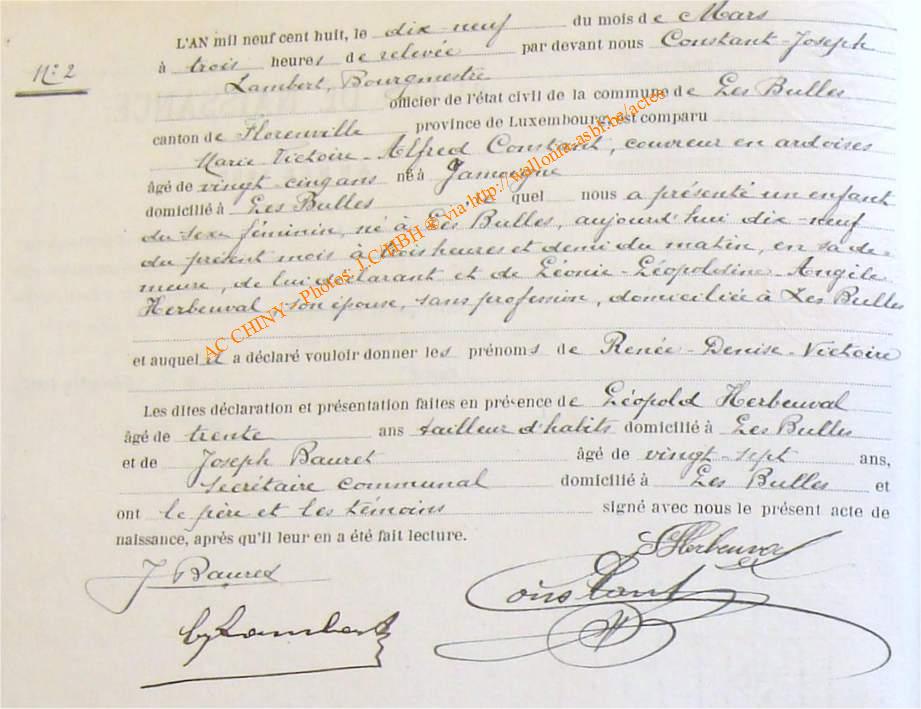 L'AN mil neuf cent huit, le dix-neuf du mois de Mars
N° 2
à trois heures de relevée par devant nous Constant-Joseph
Lambert, Bourgmestre
officier de l'état civil de la commune de Les Bulles
canton de Florenville province de Luxembourg, est comparu
Marie Victoire-Alfred Constant, couvreur en ardoises
âgé de vingt cinq ans né à Jamoigne
domicilié à Les Bulles quel nous a présenté un enfant
du sexe féminin, né à Les Bulles, aujourd'hui dix-neuf
du présent mois à trois heures et demi du matin, en sa de-
meure, de lui déclarant et de Léonie-Léopoldine-Angèle
Herbeuval, son épouse, sans profession, domiciliée à Les Bulles
et auquel il a déclaré vouloir donner les prénoms de Renée-Denise-Victoire
Les dites déclaration et présentation faites en présence de Léopold Herbeuval
âgé de trente ans tailleur d'habits domicilié à Les Bulles
et de Joseph Bauret âgé de vingt-sept ans,
secrétaire communal domicilié à Les Bulles et
ont le père et les témoins signé avec nous le présent acte de
naissance, après qu'il leur en a été fait lecture.
L Herbeuval
J Bauret
Constant
Lambert
AC CHINY - Photos: J.C/HBH @ via http://wallonia.asbf.be/actes